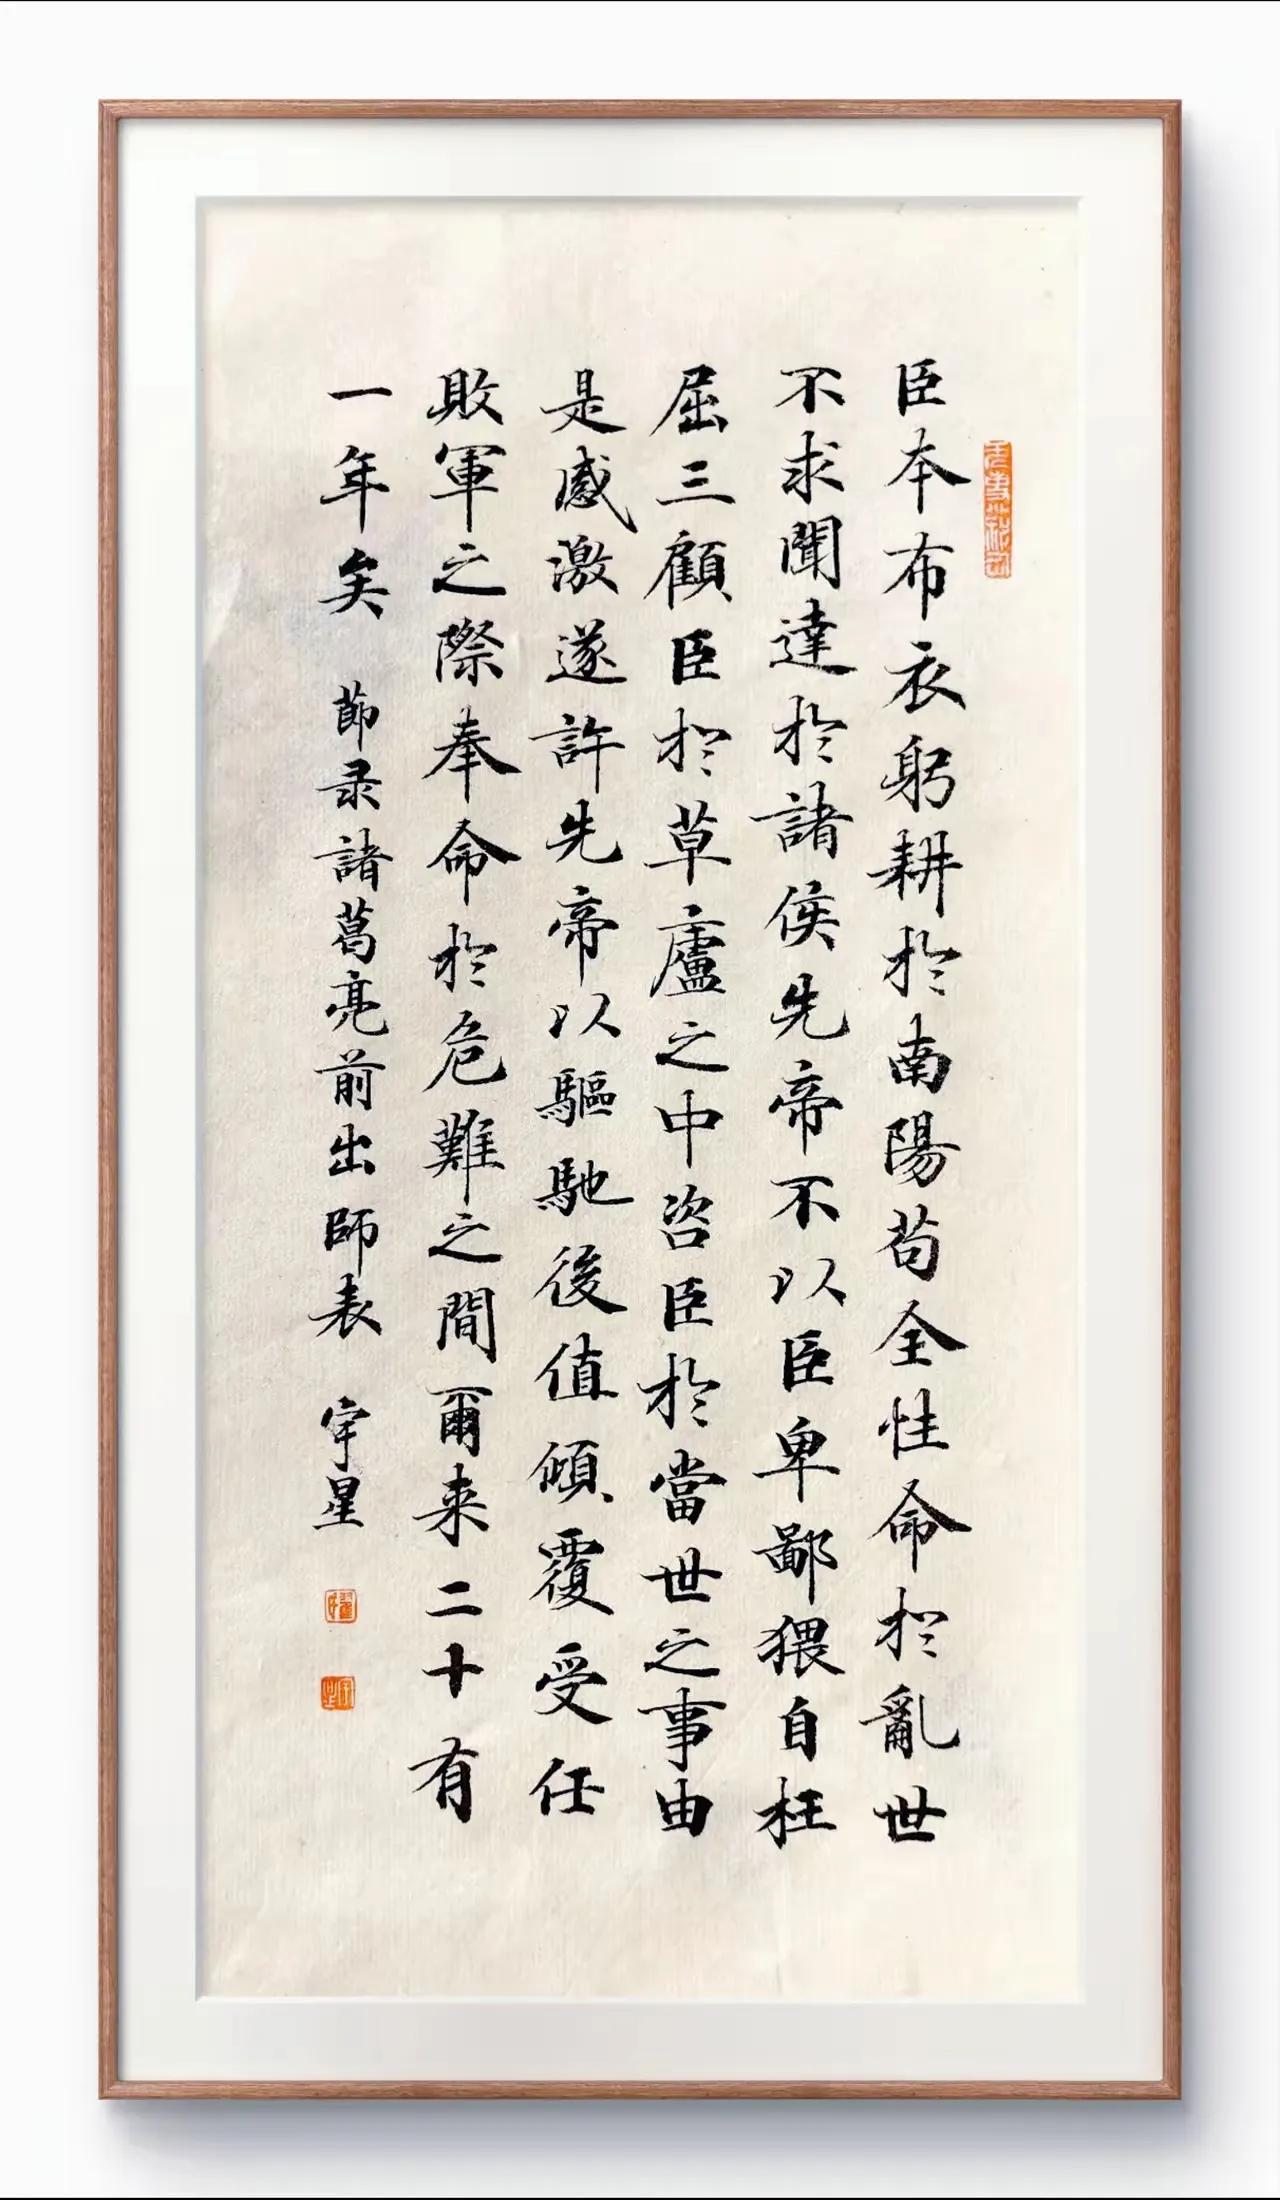 臣本布衣躬耕於南陽苟全性命於亂世
不求聞達於諸侯先帝不以臣卑鄙猥自枉
屈三顧臣於草廬之中咨臣於當世之事由
是感激遂許先帝以驅馳後值傾覆受任
敗軍之際奉命於危難之間爾来二十有
一年矣 節录諸葛亮前出師表 宇星